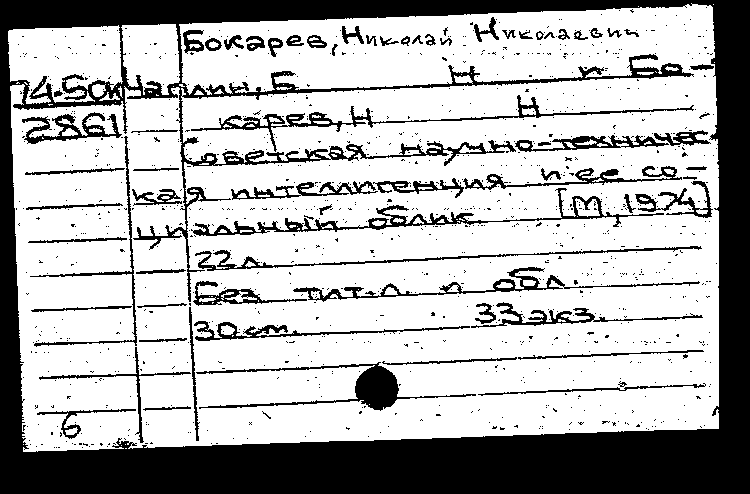 Бокарев, Николай Николаевич
74-5ок Чаплин, Б. Н и Бо-
2861 карев, Н Н
Советская научно-техничес-
кая интеллигенция и ее со-
циальный облик. [М., 1974]
22л.
Без тит.л. и обл.
30см. 33экз.
6